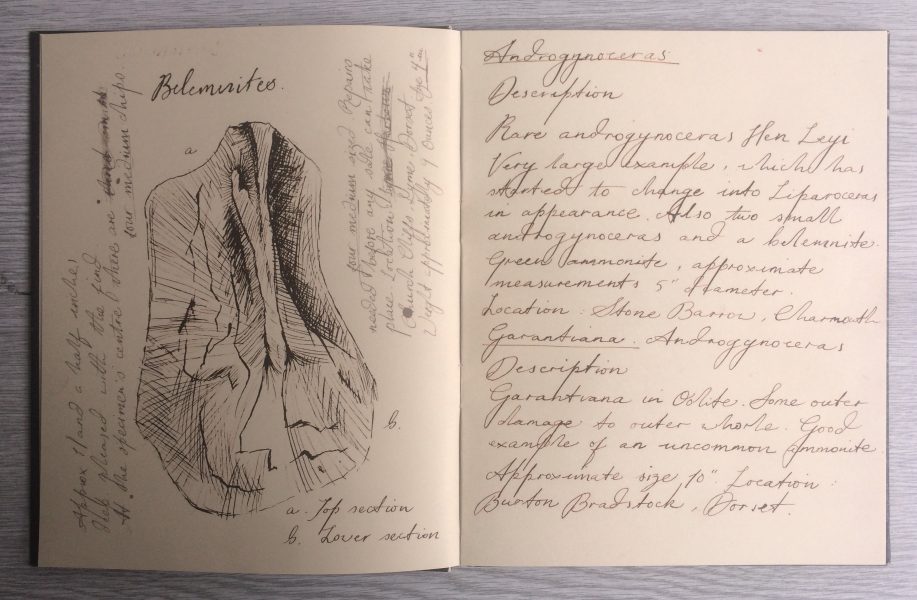 Belemnites.
a
b.
a. Top section
b. Lower section
Approx 1 and a half inches
pleased with this find
At the specimen's centre there are
four medium chips.
four medium size Repairs
needed before any sale can take
place. Location
Church Cliffs Lyme, Dorset
Weight approximately 9 ounces
Androgynoceras
Description
Rare androgynoceras Hen Leyi
Very large example, which has
started to change into Liparoceras
in appearance. Also two small
androgynoceras and a belemnite.
Green ammonite, approximate
measurements 5" diameter.
Location: Stone Barrow, Charmouth
Garantiana. Androgynoceras
Description
Garantiana in Oolite. Some outer
damage to outer whorle. Good
example of an uncommon ammonite
Approximate size 10". Location:
Burton Bradstock, Dorset.